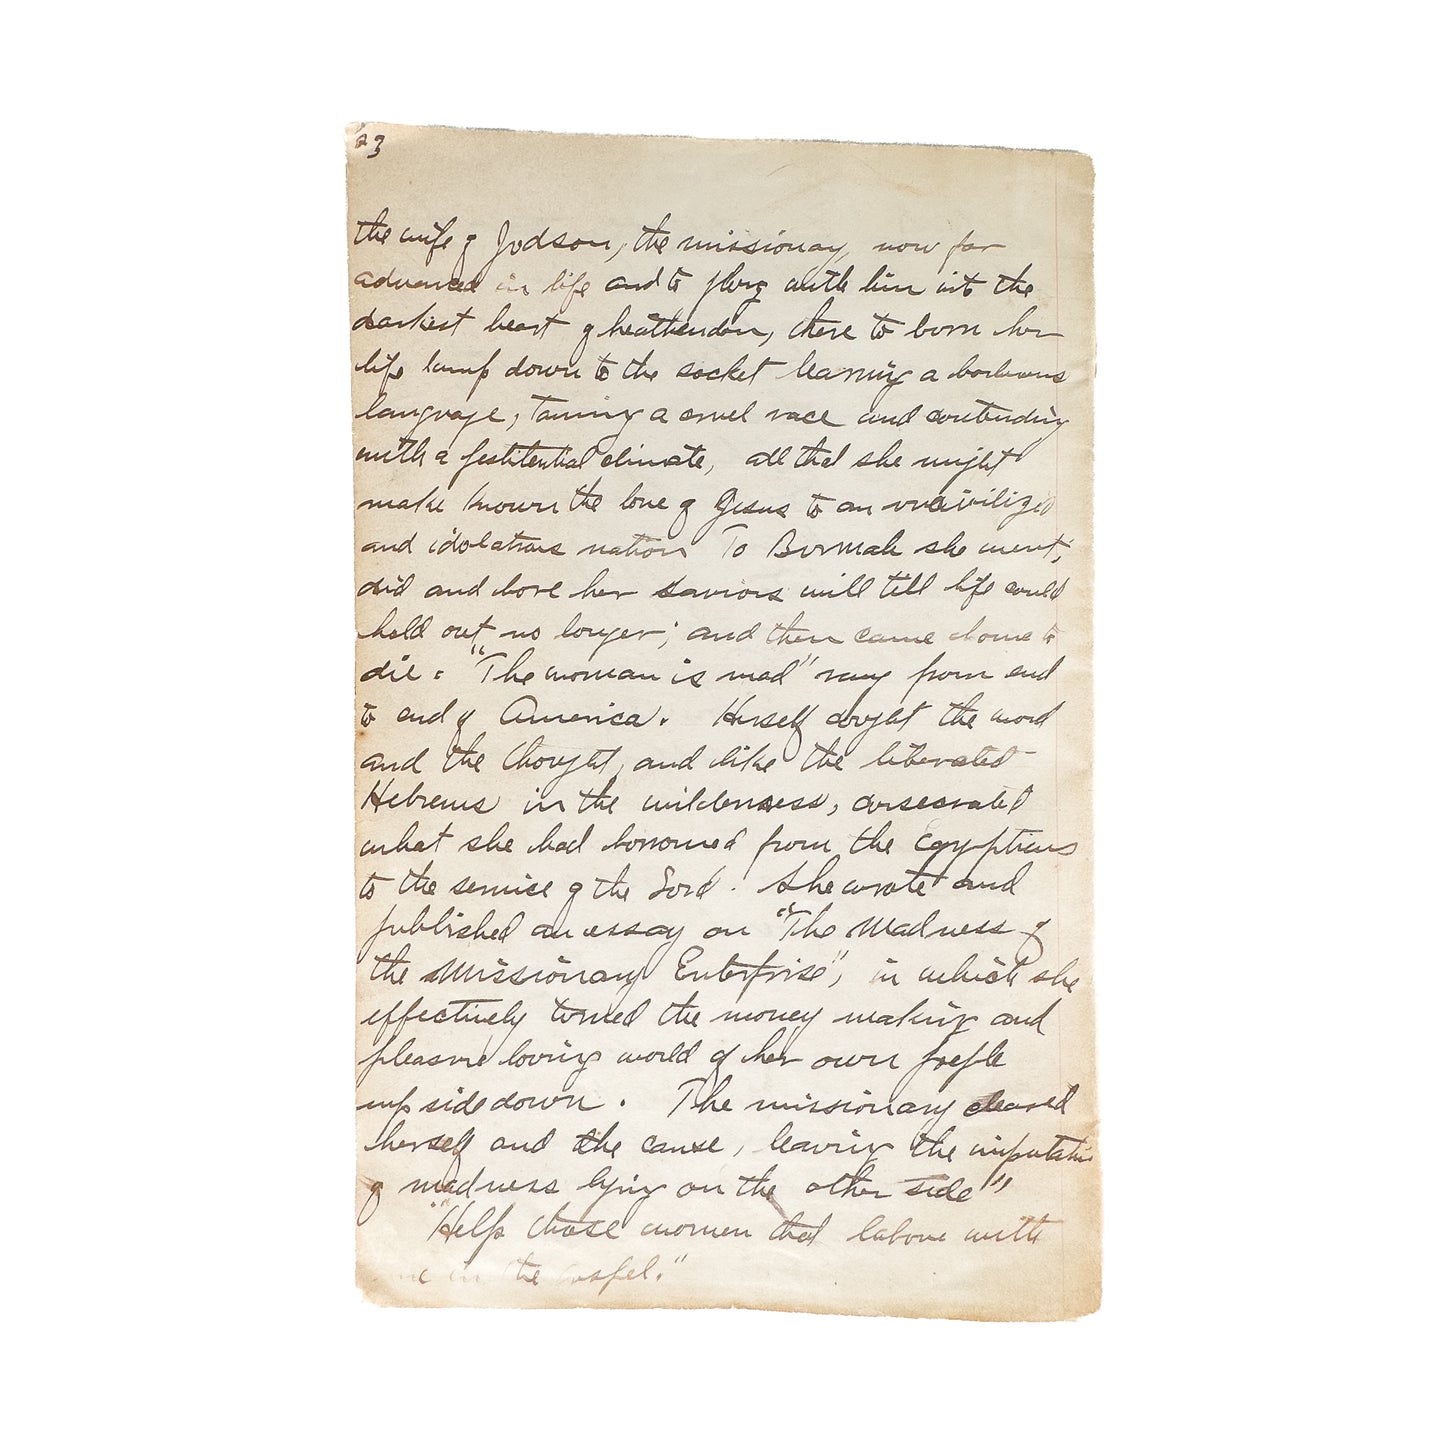 23
the wife of Judson, the missionary, now far
advanced in life and to plung with him into the
darkest heart of heathendom, there to born her
life lamp down to the socket learning a barbarous
language, taming a cruel race and contending
with a pestitential climate, all that she might
make known the love of Jesus to an uncivilized
and idolatrous nation To Burmah she went,
did and bore her saviors will till life could
hold out no longer; and then came home to
die. "The woman is mad" rang from end
to end of America. Herself caught the word
and the thought, and like the liberated
Hebrews in the wilderness, consecrated
what she had borrowed from the Egyptians
to the service of the Lord. She wrote and
published an essay on "The Madness of
the Missionary Enterprise", in which she
effectively turned the money making and
pleasure loving world of her own people
up side down. The missionary cleared
herself and the cause, leaving the imputation
of madness lying on the other side"
"Help those women that labour with
me in the Gospel."